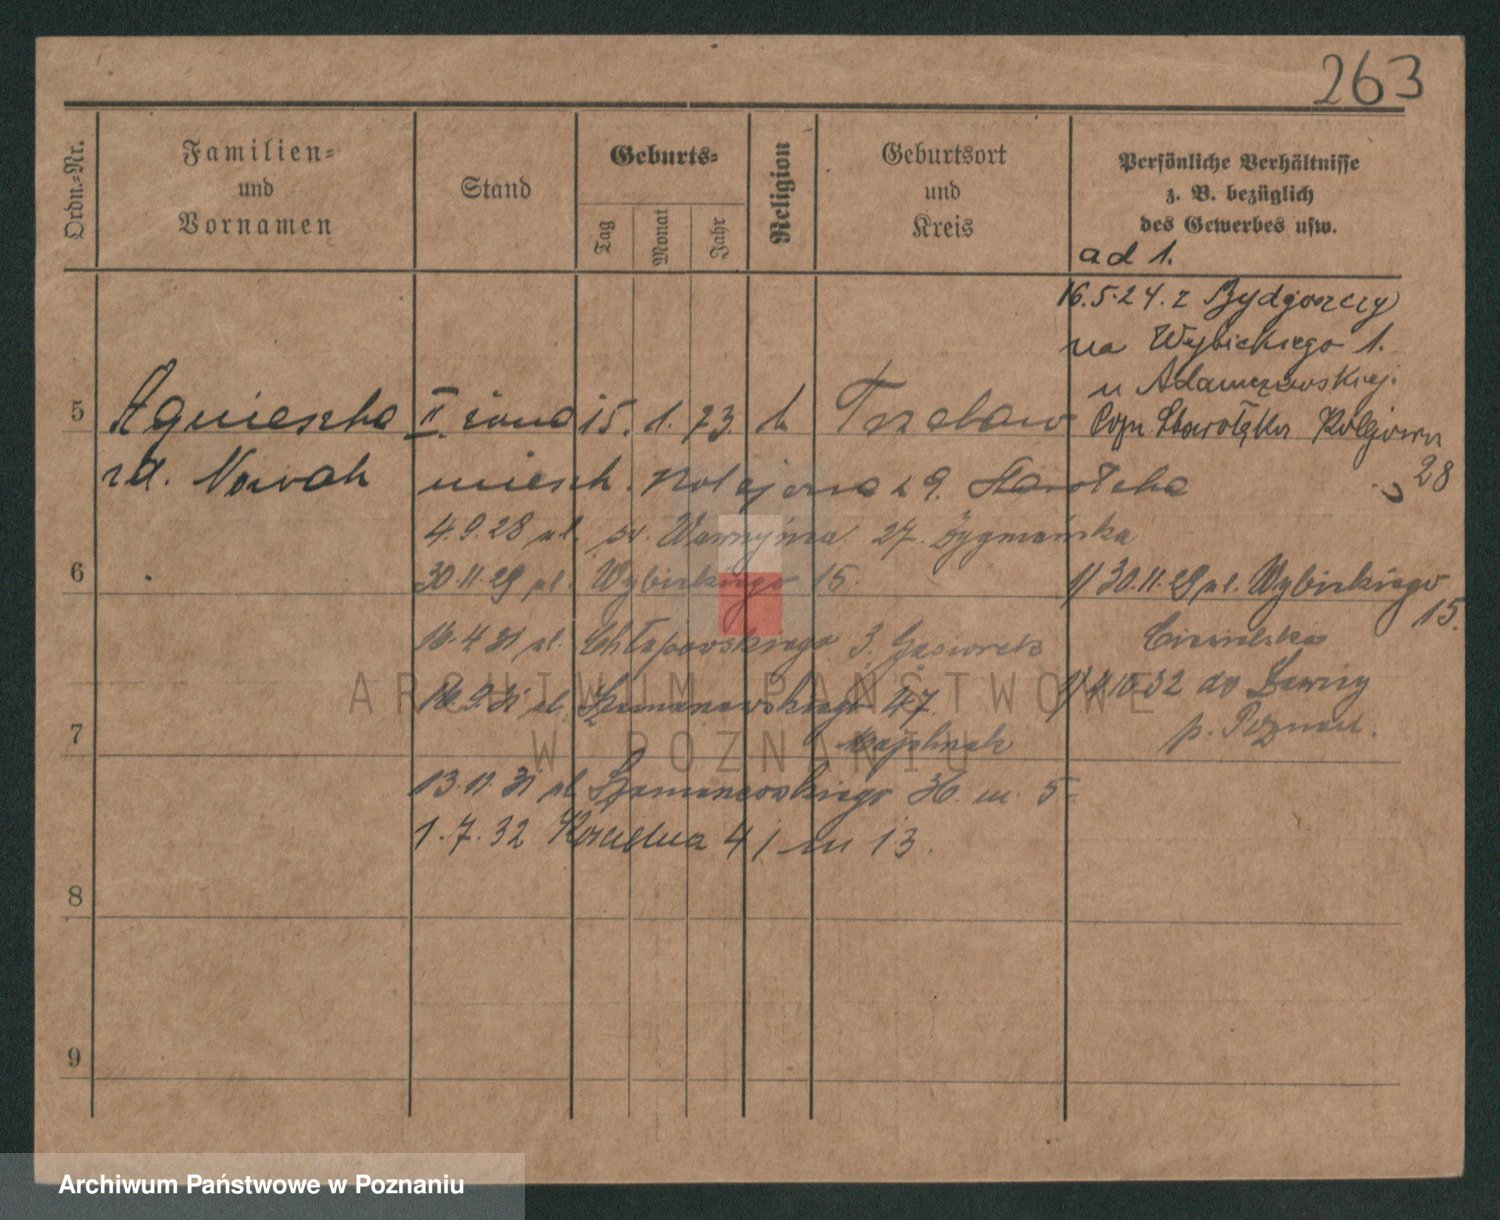 263
Ordn.-Nr.
Familien-
und
Vornamen
Stand
Geburts-
Tag
Monat
Jahr
Religion
Geburtsort
und
Kreis
Persönliche Verhältnisse
z. B. bezüglich
des Gewerbes usw.
ad 1.
16.5.24. z Bydgoszczy
na Wybickiego 1.
u Adamczewskiej.
5 Agnieszka II. żona 15. 1. 73. k
Starołęka
28
zd. Nowak
4.9.28 ul. św. Wawrzyńca 27.
6
30.11.29 ul. Wybickiego 15.
1/ 30.11.29 ul. Wybickiego
15.
16.4.31 ul. Chłapowskiego 3. Gąsiorek
16.9.31 ul. Szamarzewskiego 47.
10.32 do Ławicy
p. Poznań.
7
13.11.31 ul. Szamarzewskiego 36. m. 5.
1.7.32 41 m 13.
8
9
ARCHIWUM PAŃSTWOWE
W POZNANIU
Archiwum Państwowe w Poznaniu